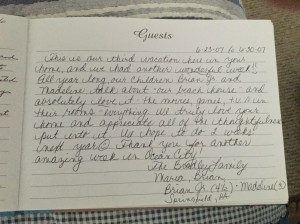 Guests
6-23-07 to 6-30-07
This is our third vacation here in your
home, and we had another wonderful week!
All year long our children Brian Jr. and
Madeline, talk about "our beach house" and
absolutely love it. The movies, games, T.V.'s in
their rooms - everything. We truly love your
home and appreciate all of the thoughtfulness
put into it. We hope to do 2 weeks
next year! Thank you for another
amazing week in Ocean City!
The Bradley Family
Maria, Brian,
Brian Jr. (4½), Madeline
Springfield, PA